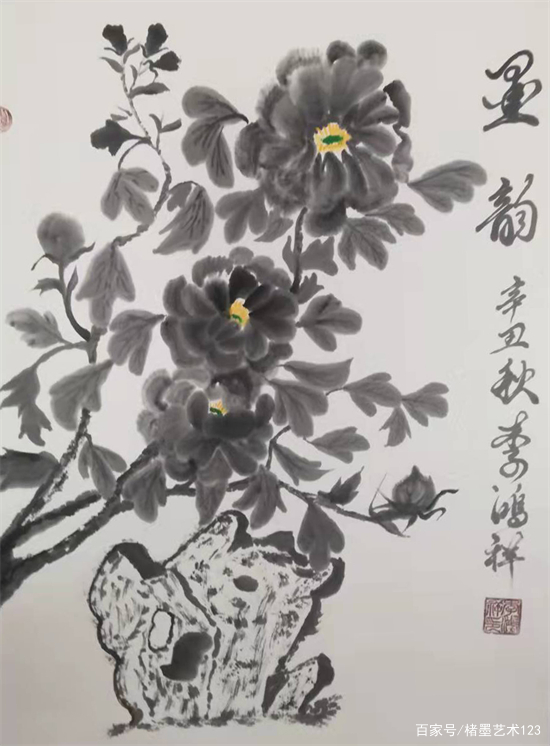 墨韵
辛丑秋李鸿祥
百家号/楮墨艺术123